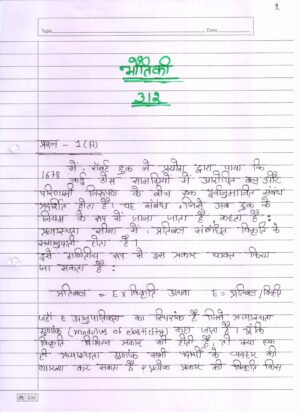 1
Topic
Date
भौतिकी
312
प्रश्न - 1(A)
1678 में, रॉबर्ट हुक ने प्रयोग द्वारा पाया कि
कई ठोस सामग्रियों में आरोपित बल और
परिणामी विरूपण के बीच एक पूर्वानुमानित संबंध
प्रदर्शित होता है। यह संबंध, जिसे अब हुक के
नियम के रूप में जाना जाता है, कहता है:
प्रत्यास्थता सीमा में, प्रतिबल संबंधित विकृति के
समानुपाती होता है।
इसे गणितीय रूप से इस प्रकार व्यक्त किया
जा सकता है:
प्रतिबल = E x विकृति अथवा E = प्रतिबल / विकृति
जहाँ E आनुपातिकता का स्थिरांक है जिसे प्रत्यास्थता
गुणांक (modulus of elasticity) कहा जाता है। चूंकि
विकृति विभिन्न प्रकार की होती हैं, तो क्या एक
ही प्रत्यास्थता गुणांक सभी पदार्थों के व्यवहार की
व्याख्या कर सकता है? प्रत्येक प्रकार की विकृति किस